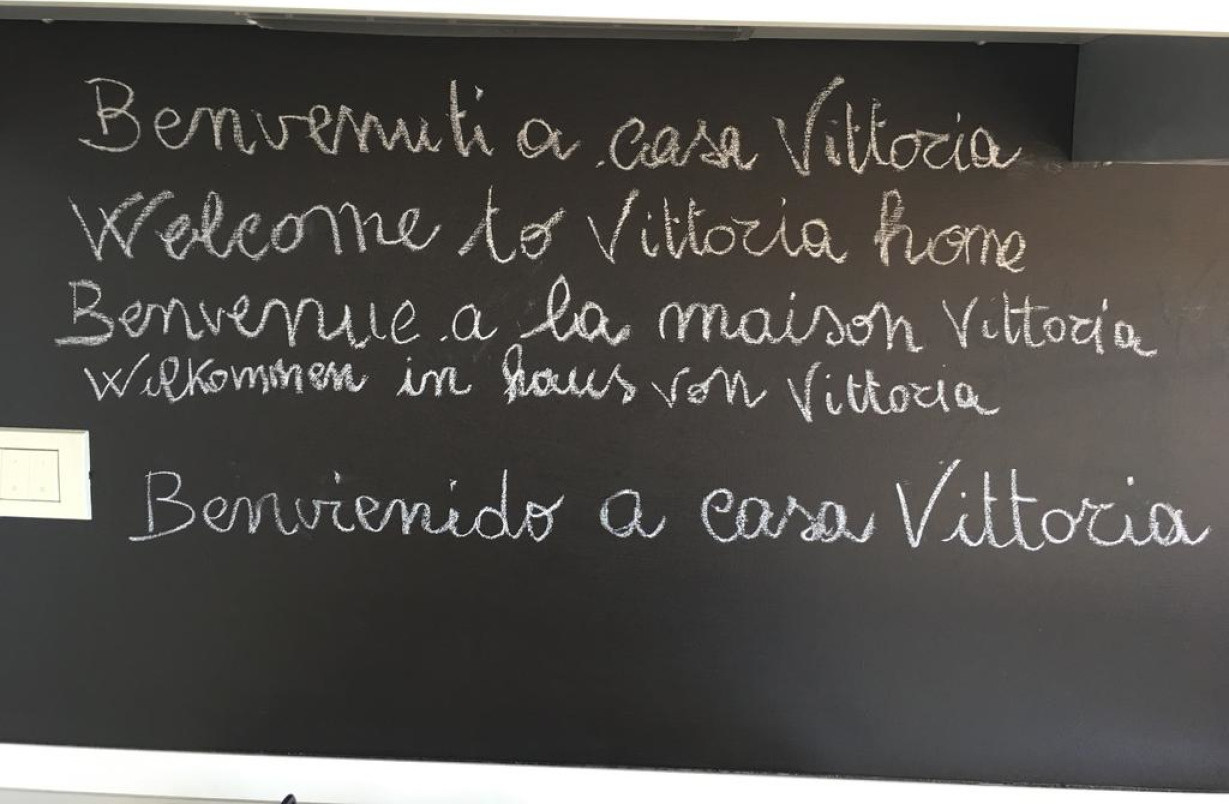 Benvenuti a casa Vittoria
Welcome to Vittoria home
Benvenue a la maison Vittoria
Wilkommen in haus von Vittoria
Benvienido a casa Vittoria